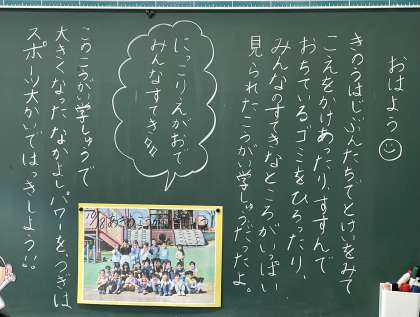 おはよう
きのうはじぶんたちでとけいをみて
こえをかけあったり、すすんで
おちているゴミをひろったり、
みんなのすてきなところがいっぱい
見られたこうがい学しゅうだったよ。
にっこりえがおで
みんなすてき
このこうがい学しゅうで
大きくなったなかよしパワーを、つぎは
スポーツ大かいではっきしよう!!